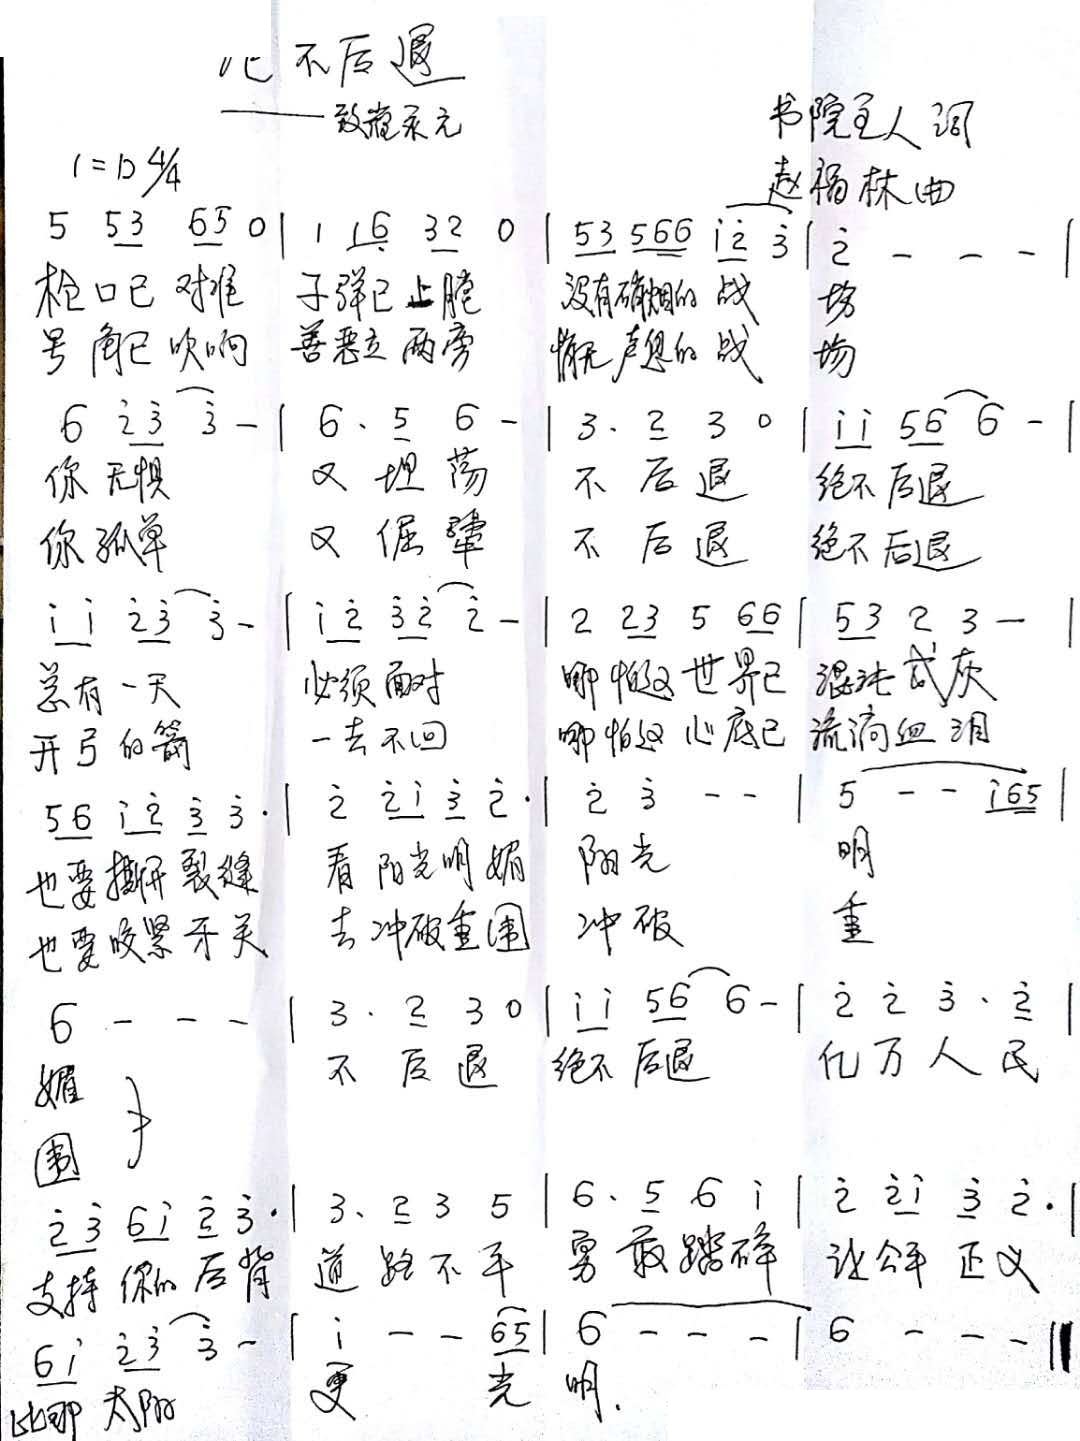 不后退
——致崔永元
书院主人词
1=D 4/4
赵福林曲
5 53 65 0 | 1 16 32 0 | 53 566 i2 3 | 2 - - - |
枪口已 对准 子弹已上膛 没有硝烟的 战 场
号角已 吹响 善恶立两旁 悄无声息的 战 场
6 23 3 - | 6. 5 6 - | 3. 2 3 0 | ii 56 6 - |
你无惧 又坦荡 不后退 绝不后退
你孤单 又倔犟 不后退 绝不后退
ii 23 3 - | i2 32 2 - | 2 23 5 66 | 53 2 3 - |
总有一天 必须面对 哪怕这世界已 混沌成灰
开弓的箭 一去不回 哪怕这心底已 流淌血泪
56 i2 3 3. | 2 2i 3 2. | 2 3 - - | 5 - - i65 |
也要撕开裂缝 看阳光明媚 阳光 明
也要咬紧牙关 去冲破重围 冲破 重
6 - - - | 3. 2 3 0 | ii 56 6 - | 2 2 3. 2 |
媚 不后退 绝不后退 亿万人民
围
23 6i 2 3. | 3. 2 3 5 | 6. 5 6 i | 2 2i 3 2. |
支持你的后背 道路不平 勇敢踏碎 让公平正义
6i 23 3 - | i - - 65 | 6 - - - | 6 - - - ‖
比那太阳 更 光 明.